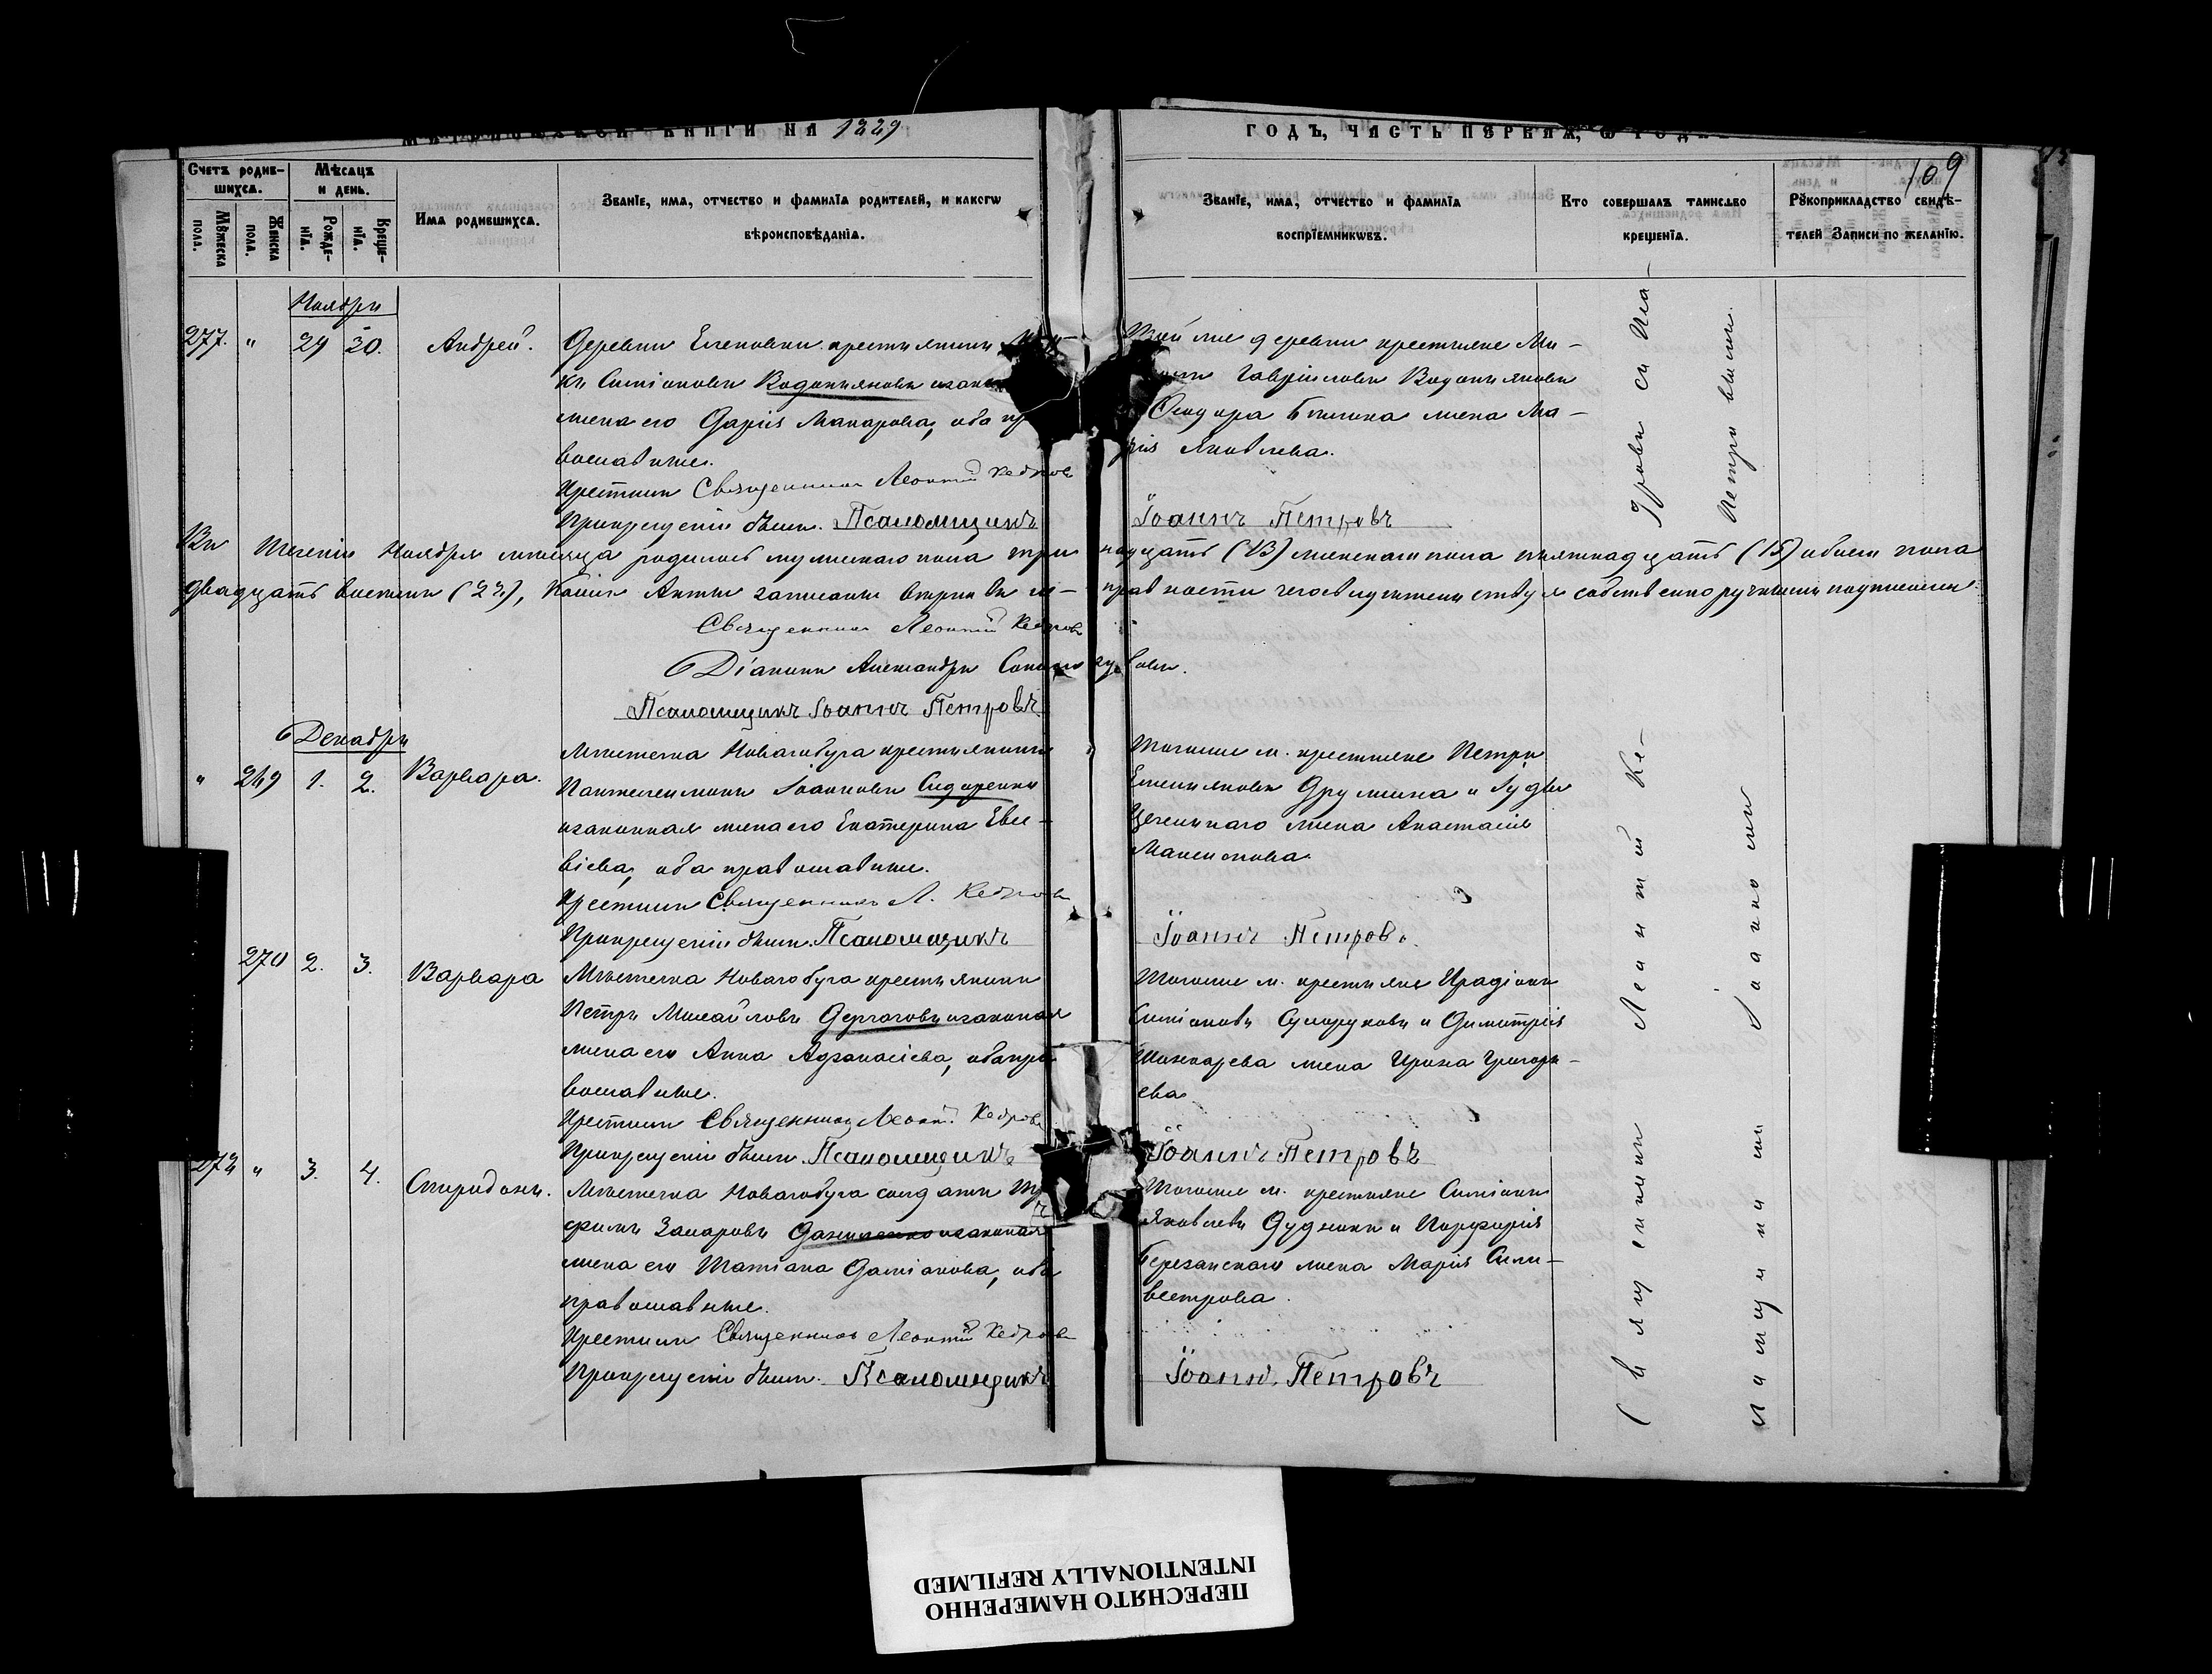 МЕТРИЧЕСКОЙ КНИГИ НА 1889
ГОДЪ, ЧАСТЬ ПЕРВАЯ, Ѡ РОДИ
109
Счетъ родив-
шихсѧ.
Мꙋжеска
пола.
Женска
пола.
Мѣсѧцъ
и день.
Рожде-
нїѧ.
Креще-
нїѧ.
Имѧ родившихсѧ.
Званїе, имѧ, отчество и фамилїѧ родителей, и какогѡ
вѣроисповѣданїѧ.
Званїе, имѧ, отчество и фамилїѧ
воспрїемникѡвъ.
Кто совершалъ таинство
крещенїѧ.
Рꙋкоприкладство свидѣ-
телей записи по желанїю.
Ноябрь
277. " 29 30. Андрей.
Деревни Еленовки крестьянинъ
Симіоновъ Водопьяновъ изакон
жена его Дарія Макарова, оба пра
вославные.
Крестилъ Священникъ Леонтій Кедров
Прикрещеніи былъ Псаломщикъ
Той же деревни крестьяне Ми-
Гавріиловъ Водопьяновъ
Ѳеодора жена Ма-
рія Яковлева.
Іоаннъ Петровъ
Въ теченіи Ноября мѣсяца родилось мужескаго пола тринадцать (13) женскаго пола пятнадцать (15) обоего пола
двадцать восемь (28), Каковые Акты записаны вѣрно въ и- правности чего свидѣтельствуемъ собственноручнымъ подписомъ
Священникъ Леонтій Кедровъ
Діаконъ Александръ
Псаломщикъ Іоаннъ Петровъ
Декабрь
" 269 1. 2. Варвара.
Мѣстечка Новагобуга крестьянинъ
Пантелеимонъ Іоанновъ Сидоренко
изаконная жена его Екатерина Евсе-
віева, оба православные.
Крестилъ Священникъ Л. Кедров
Прикрещеніи былъ Псаломщикъ
Тогоже м. крестьяне Петръ
Емельяновъ Дружина и
жена Анастасія
Максимова.
Іоаннъ Петровъ.
270 2. 3. Варвара
Мѣстечка Новагобуга крестьянинъ
Петръ Михайловъ Дергачовъ изаконая
жена его Анна Афанасіева, оба пра
вославные.
Крестилъ Священникъ Леонт. Кедровъ
Прикрещеніи былъ Псаломщикъ
Тогоже м. крестьяне Иродіонъ
Симіоновъ Сухоруковъ и Димитрія
Шинкарева жена Ирина Григорь-
ева
Іоаннъ Петровъ
" 3. 4. Спиридонъ.
Мѣстечка Новагобуга солдатъ Тр
фимъ Захаровъ Даниленко изаконая
жена его Татіана Даміанова, оба
православные.
Крестилъ Священникъ Леонтій Кедров
Прикрещеніи былъ Псаломщикъ
Тогоже м. крестьяне Симіонъ
Яковлевъ Дудникъ и Порфирія
Березанскаго жена Марія Силь-
вестрова.
Іоаннъ Петровъ
Священникъ Леонтій Ке-
дровъ съ Пса-
ломщикомъ Іоанномъ
Петровымъ.
ПЕРЕСНЯТО НАМЕРЕННО
INTENTIONALLY REFILMED